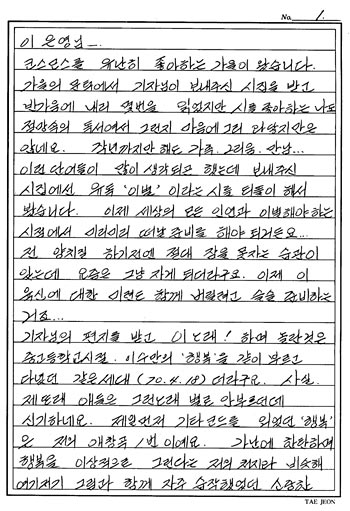 No. 1.
이은영님_
코스모스를 유난히 좋아하는 가을이 왔습니다.
가을의 문턱에서 기자님이 보내주신 시집을 받고
반가움에 내리 몇번을 읽었지만 시를 좋아하는 나도
정말족의 독서여서 그런지 마음에 그리 와닿지만은
않네요. 작년까지만 해도 가족. 그리움. 만남...
이런 단어들이 많이 생각되곤 했는데 보내주신
시집에선 유독 '이별' 이라는 시를 되풀이 해서
봤습니다. 이제 세상의 모든 인연과 이별해야 하는
시점에서 미리미리 떠날 준비를 해야 되거든요...
전 양치질 하기전에 절대 잠을 못자는 습관이
있는데 요즘은 그냥 자게 되더라구요. 이제 이
육신에 대한 미련도 함께 버릴려고 슬슬 준비하는
거죠...
기자님의 편지를 받고 이노래! 하며 놀란것은
중고등학교시절. 이수만의 '행복'을 같이 부르고
다녔던 같은세대 (70.4.18) 더라구요. 사실.
제또래 애들은 그런노래 별로 안부르던데
신기하네요. 제일먼저 기타코드를 외웠던 '행복'
은 저의 애창곡 1번이예요. 가난에 한탄하며
행복을 이상적으로 그린다는 것이 저의 처지랑 비슷해
여기저기 그림과 함께 자주 습작했었던 소중한
TAE JEON